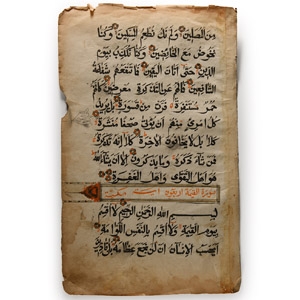 من المصلين ولم نك نطعم المسكين وكنا
نخوض مع الخائضين وكنا نكذب بيوم
الدين حتى اتانا اليقين فما تنفعهم شفعة
الشافعين فما لهم عن التذكرة معرضين كانهم
حمر مستنفرة فرت من قسورة بل يريد
كل امرئ منهم ان يؤتى صحفا منشرة
كلا بل لا يخافون الاخرة كلا انه تذكرة
فمن شاء ذكره وما يذكرون الا ان يشاء
الله هو اهل التقوى واهل المغفرة
سورة القيمة
بسم الله الرحمن الرحيم لا اقسم
بيوم القيمة ولا اقسم بالنفس اللوامة
ايحسب الانسان ان لن نجمع عظامه بلى